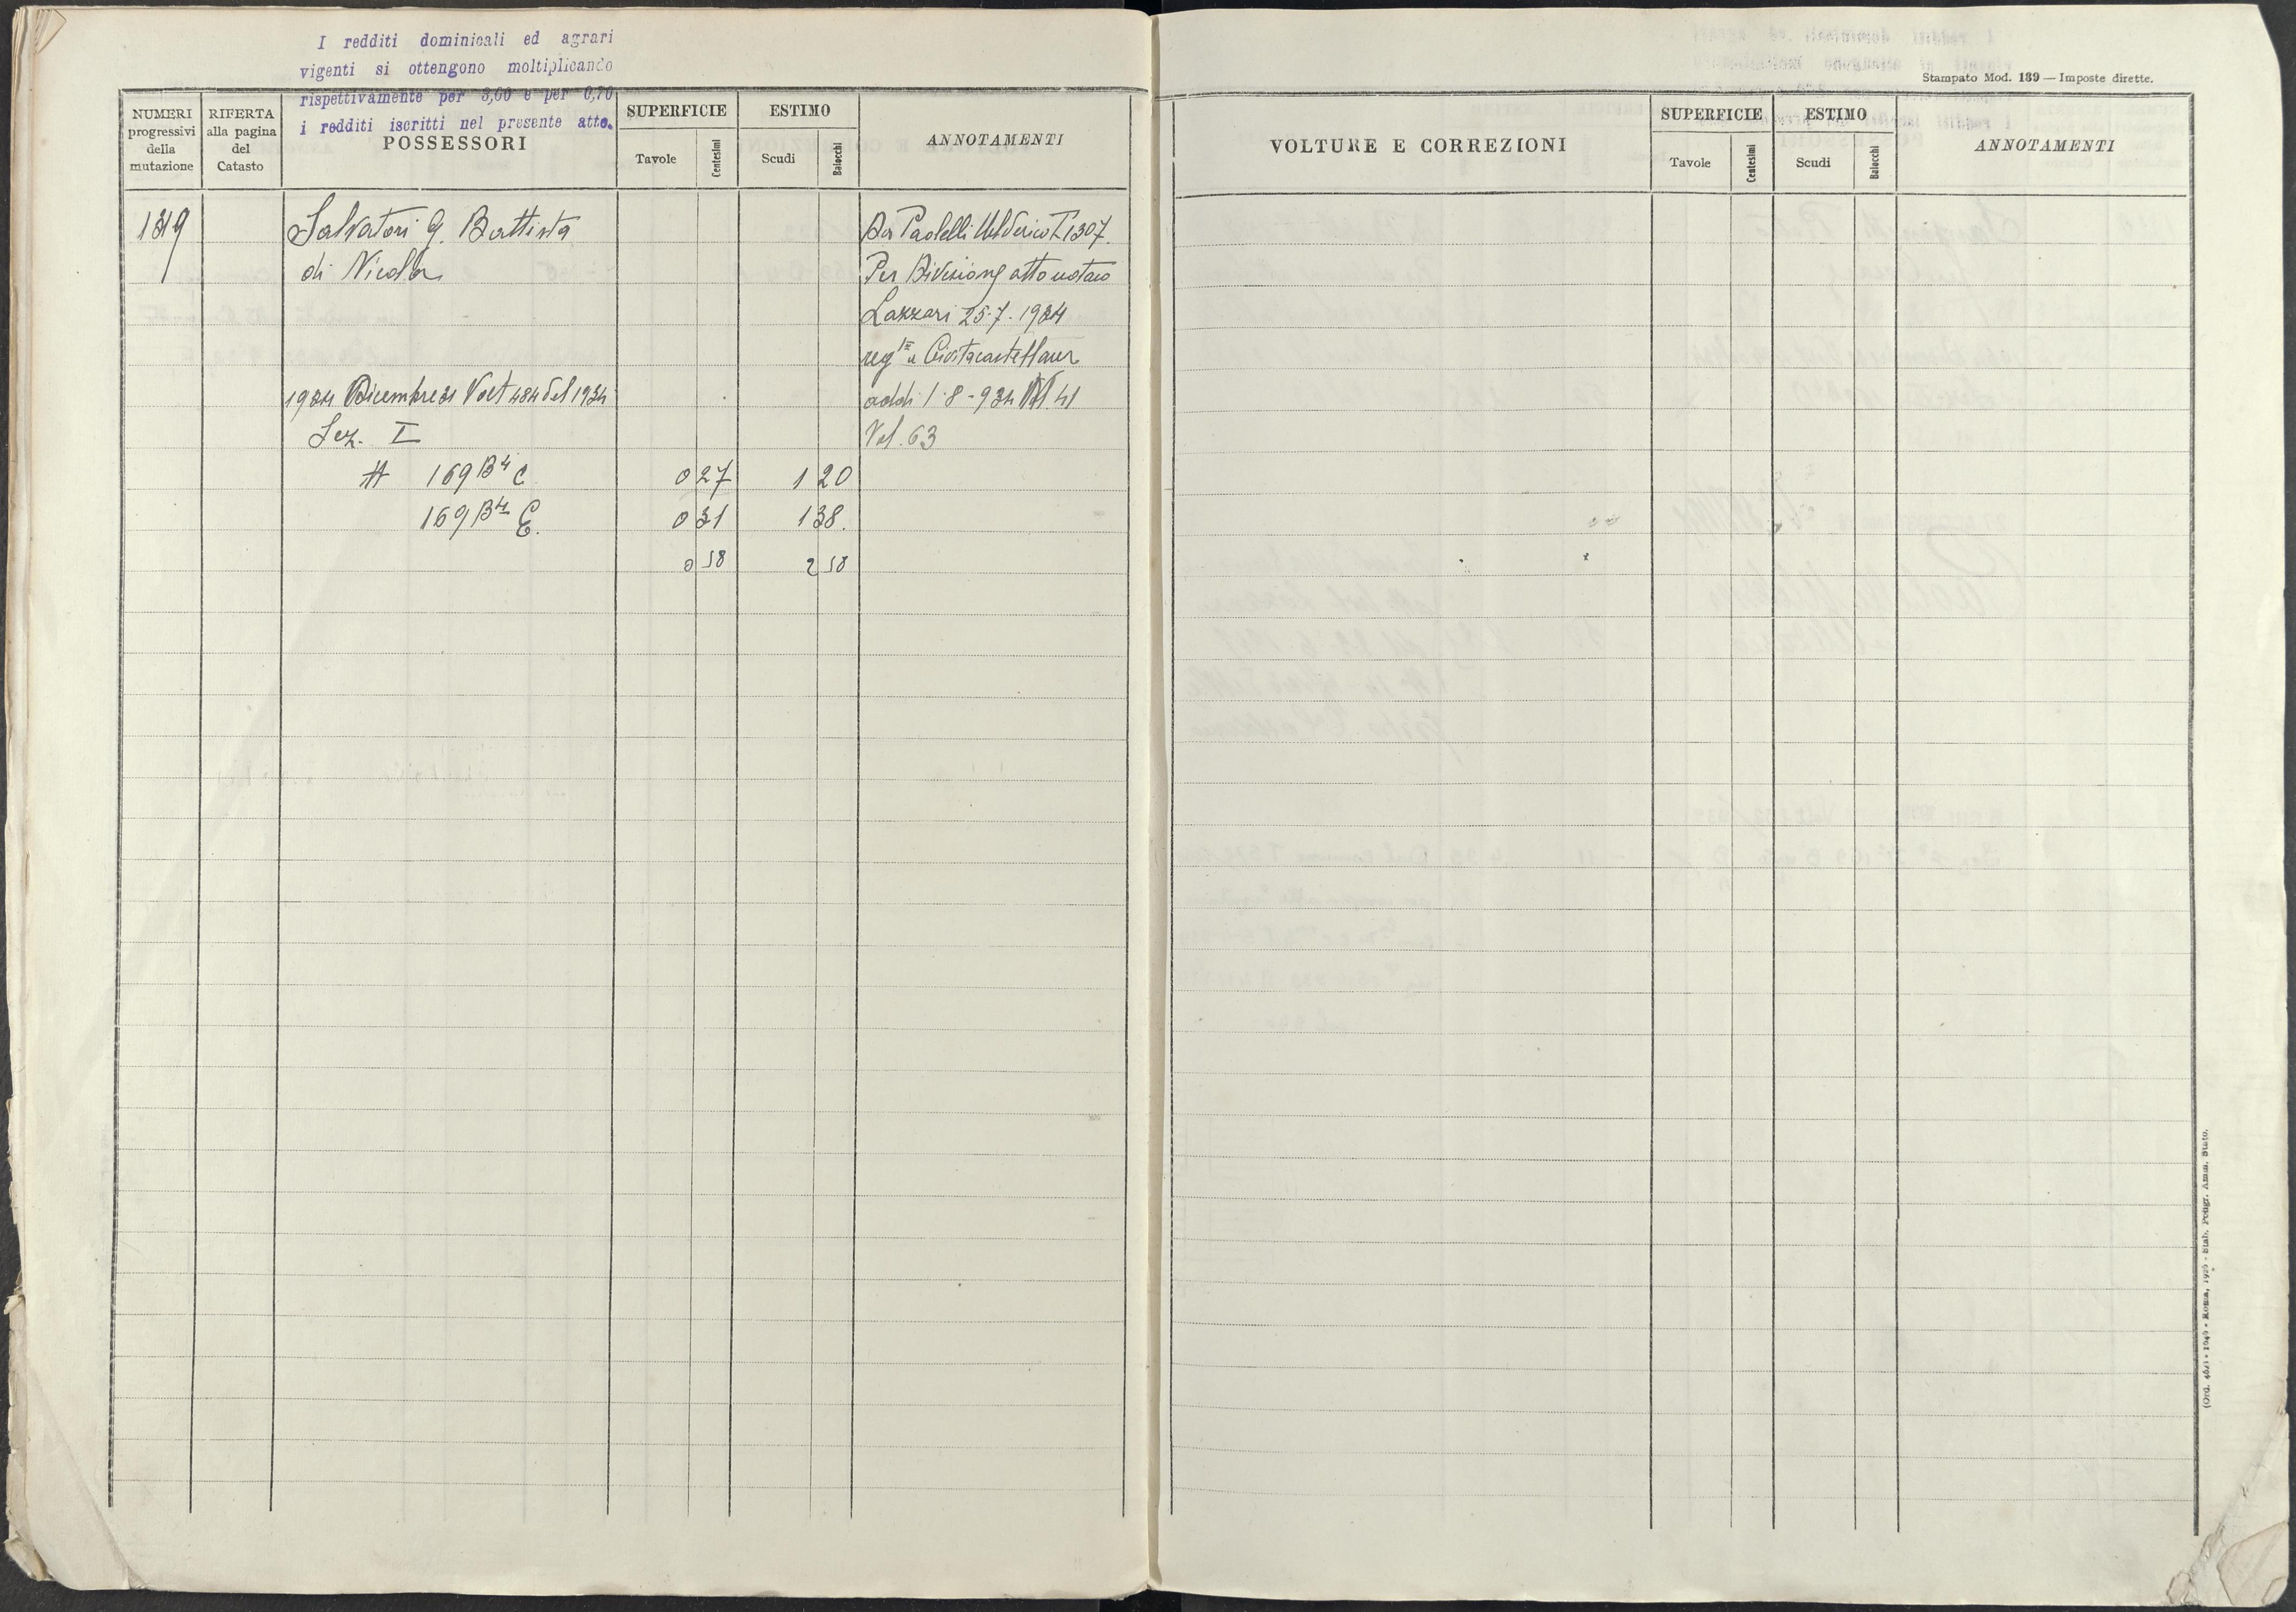 I redditi dominicali ed agrari
vigenti si ottengono moltiplicando
rispettivamente per 3,60 e per 0,70
i redditi iscritti nel presente atto.
NUMERI progressivi della mutazione
RIFERTA alla pagina del Catasto
POSSESSORI
SUPERFICIE
Tavole
Centesimi
ESTIMO
Scudi
Baiocchi
ANNOTAMENTI
1319 Salvatori G. Battista Da Paolelli Uldericо T 1307.
di Nicola Per Divisione atto notaio
Lazzari 25.7.1934
reg a Civitacastellana
1934 Dicembre 31 Volt 484 del 1934 addi 1-8-934 N 41
Sez. I Vol. 63
# 169 B4 C 0 27 1 20
169 B4 E. 0 31 1 38.
0 58 2 58
Stampato Mod. 139 — Imposte dirette.
VOLTURE E CORREZIONI
SUPERFICIE
Tavole
Centesimi
ESTIMO
Scudi
Baiocchi
ANNOTAMENTI
Roma, Stab. Poligr. Amm. Stato.